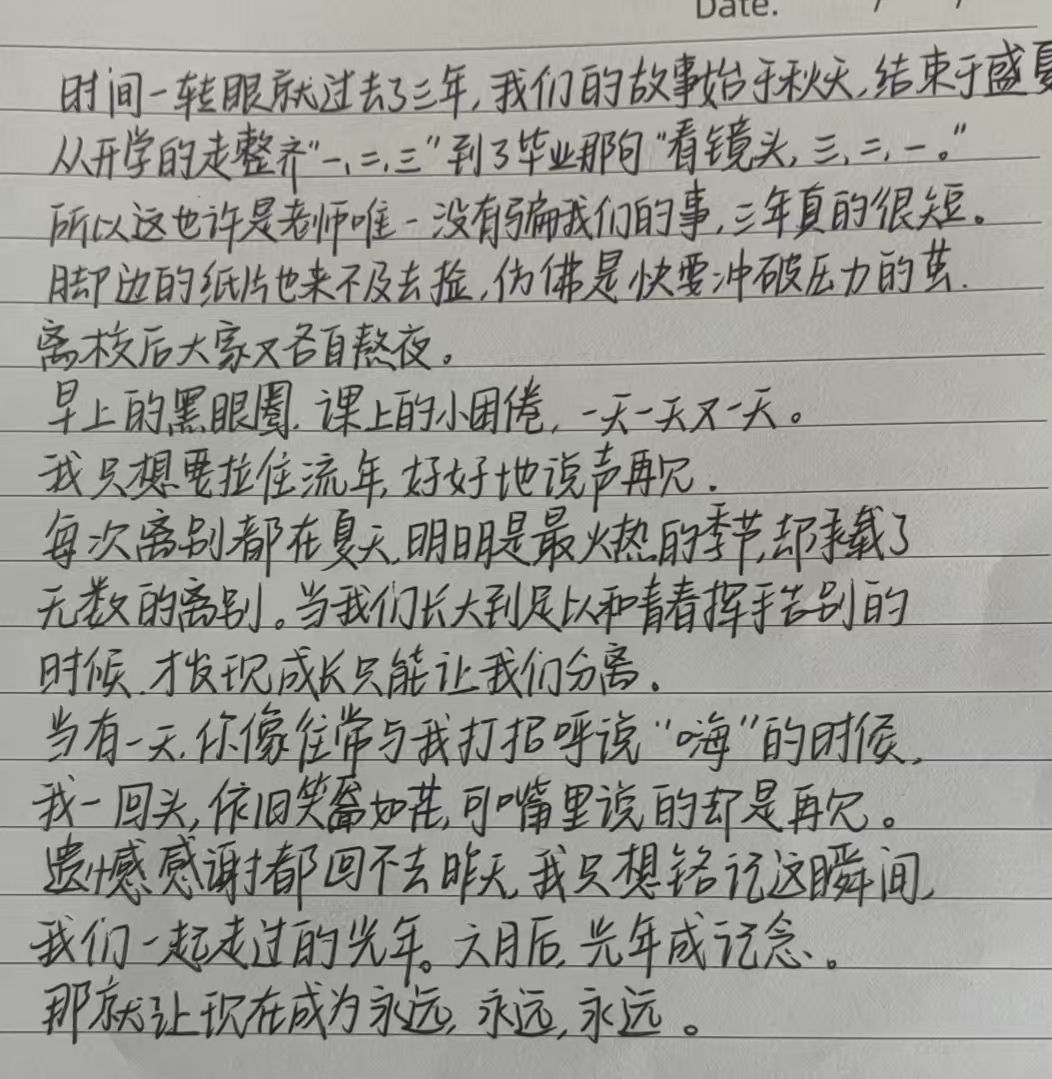 Date. / /
时间一转眼就过去了三年,我们的故事始于秋天,结束于盛夏
从开学的走整齐“一、二、三”到了毕业那句“看镜头,三、二、一。”
所以这也许是老师唯一没有骗我们的事,三年真的很短。
脚边的纸片也来不及去捡,仿佛是快要冲破压力的茧.
离校后大家又各自熬夜。
早上的黑眼圈.课上的小困倦,一天一天又一天。
我只想要拉住流年,好好地说声再见.
每次离别都在夏天,明明是最火热的季节,却承载了
无数的离别。当我们长大到足以和青春挥手告别的
时候.才发现成长只能让我们分离.
当有一天,你像往常与我打招呼说“嗨”的时候,
我一回头,依旧笑靥如花,可嘴里说的却是再见。
遗憾感谢都回不去昨天,我只想铭记这瞬间,
我们一起走过的光年。六月后,光年成记念、。
那就让现在成为永远,永远,永远。